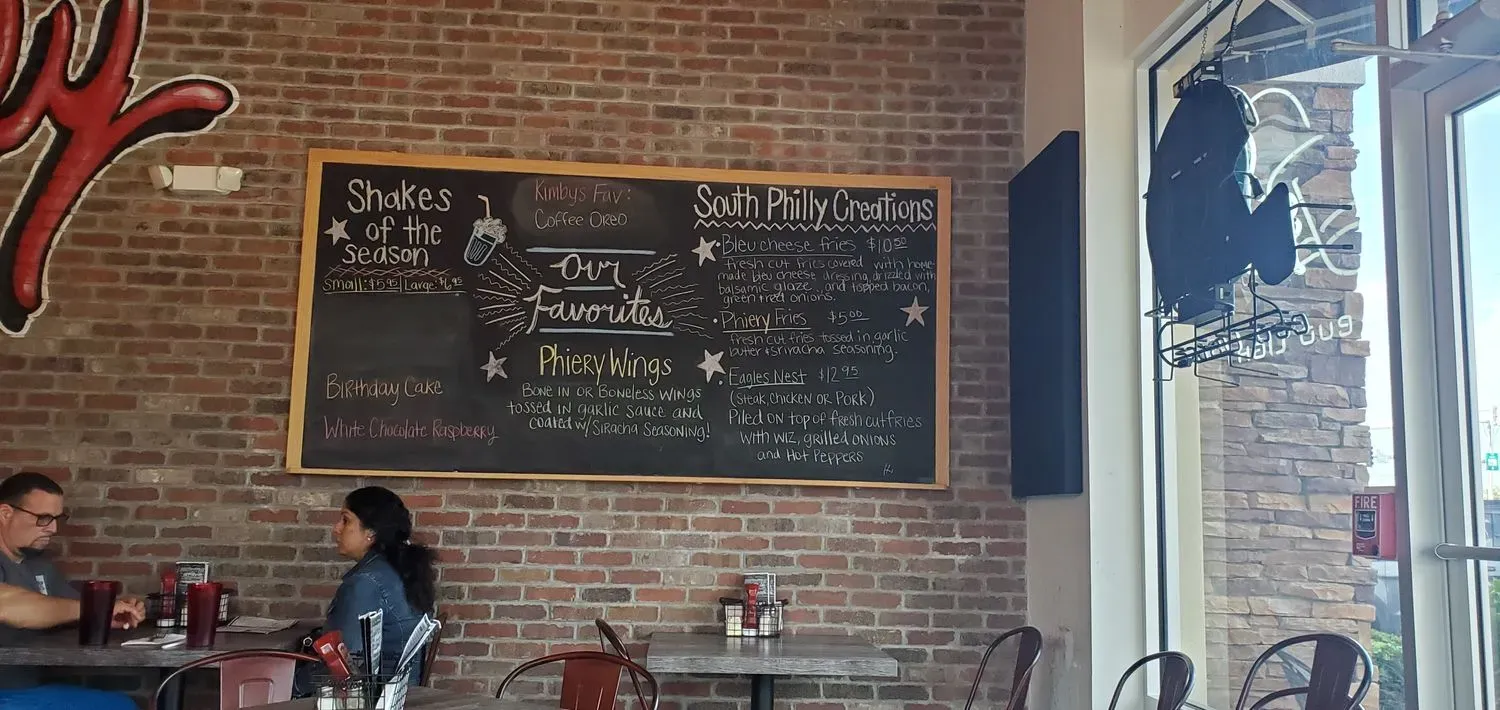 Shakes
of the
Season
Small: $5.95 | Large: $6.95
Birthday Cake
White Chocolate Raspberry
Kimbys Fav:
Coffee Oreo
Our
Favorites
Phiery Wings
Bone in or Boneless wings
tossed in garlic sauce and
coated w/ Siracha seasoning!
South Philly Creations
Bleu cheese fries $10.50
fresh cut fries covered with home-
made bleu cheese dressing, drizzled with
balsamic glaze, and topped bacon,
green + red onions.
Phiery Fries $5.00
fresh cut fries tossed in garlic
butter + sriracha seasoning.
Eagles Nest $12.95
(Steak, Chicken or Pork)
Piled on top of fresh cut fries
with wiz, grilled onions
and Hot Peppers
FIRE